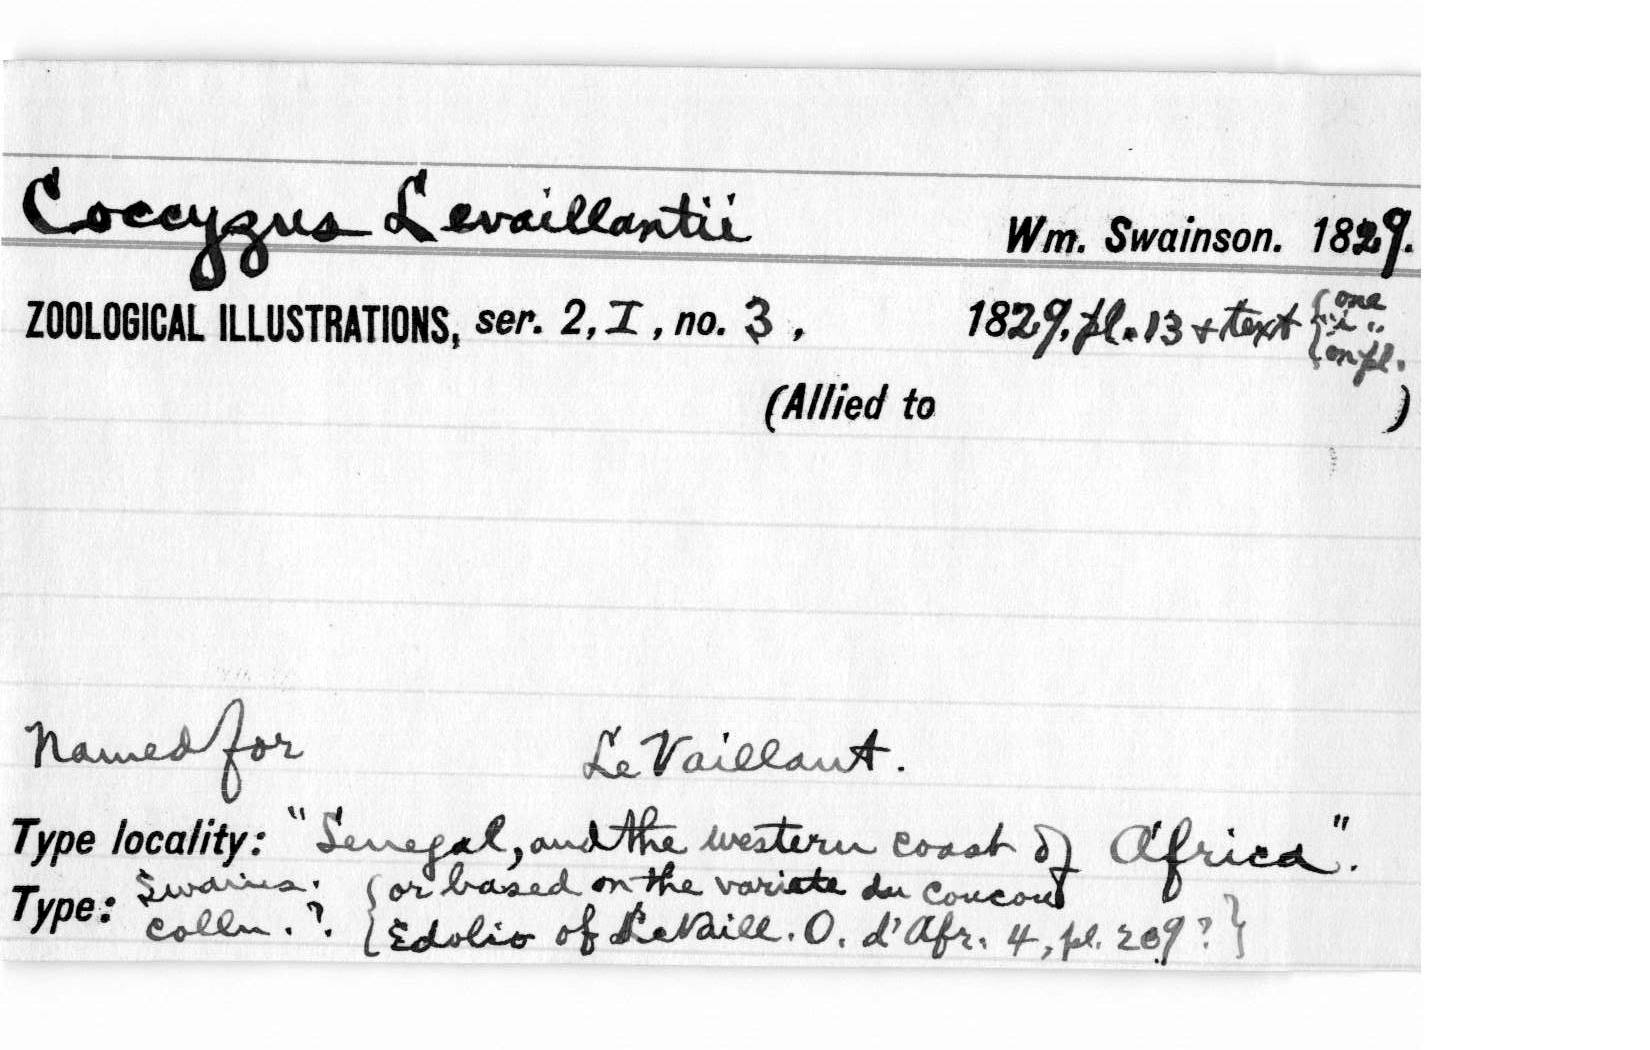 Coccyzus Levaillantii Wm. Swainson. 1829.
ZOOLOGICAL ILLUSTRATIONS, ser. 2, I, no. 3, 1829, pl. 13 + text {one "i" on pl.
(Allied to )
Named for LeVaillant.
Type locality: "Senegal, and the western coast of Africa".
Type: Swains. colln. ? {or based on the variete du coucou
Edolio of LeVaill. O. d'Afr. 4, pl. 209 ?}